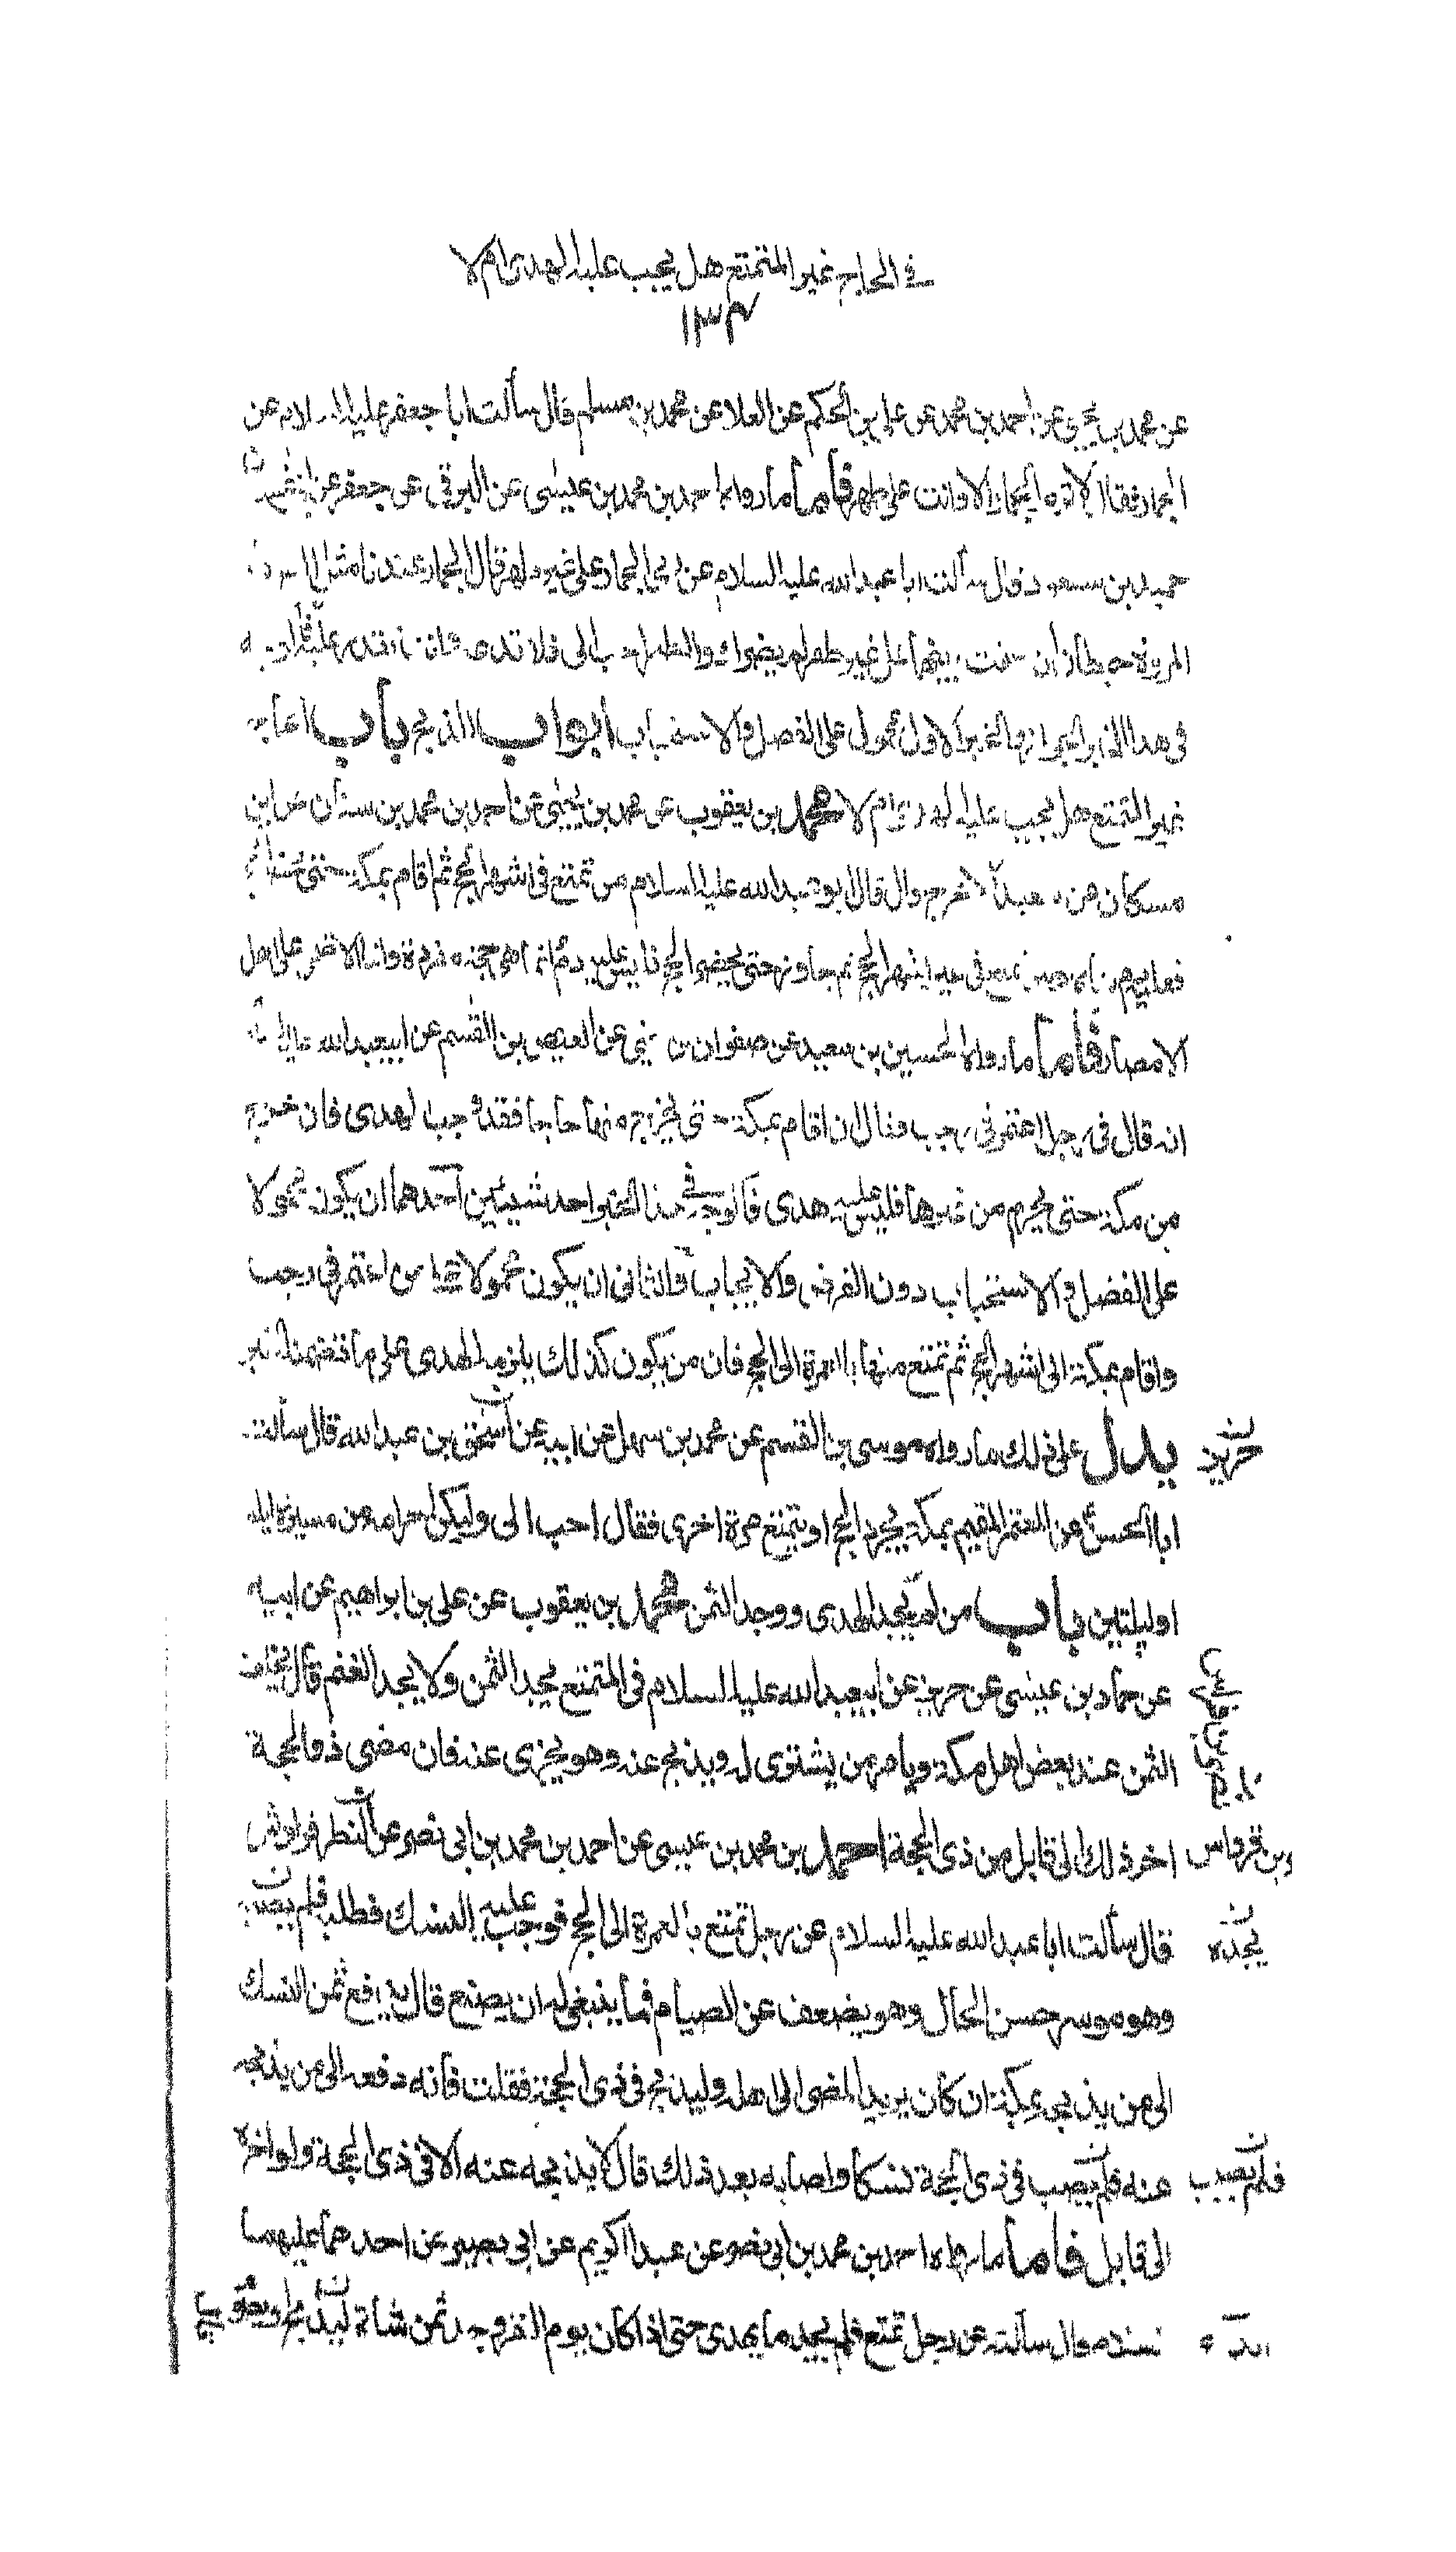 في الحاج غير المتمتع هل يجب عليه الهدى ام لا
١٣٤
عن محمد بن يحيى عن احمد بن محمد عن على بن الحكم عن العلا عن محمد بن مسلم قال سألت ابا جعفر عليه السلام عن
الجمار فقال لا ترم الجمار الا وانت على طهر فأما ما رواه احمد بن محمد بن عيسى عن البرقى عن جعفر عن ابى غسان
حميد بن مسعود قال سألت ابا عبدالله عليه السلام عن رمى الجمار على غير طهر قال الجمار عندنا مثل الصفا و
المروة حيطان ان طفت بينهما على غير طهر لم يضرك والطهر احب الى فلا تدعه وانت تقدر عليه
فى هذا الخبر الجواز والخبر الاول محمول على الفضل والاستحباب ابواب الذبح باب الحاج
غير المتمتع هل يجب عليه الهدى ام لا محمد بن يعقوب عن محمد بن يحيى عن احمد بن محمد بن سنان عن ابن
مسكان عن سعيد الاعرج قال قال ابو عبدالله عليه السلام من تمتع فى اشهر الحج ثم اقام بمكة حتى يحضر الحج
فعليه شاة ومن تمتع فى غير اشهر الحج ثم جاور حتى يحضر الحج فليس عليه دم انما هى حجة مفردة وانما الاضحى على اهل
الامصار فأما ما رواه الحسين بن سعيد عن صفوان بن يحيى عن العيص بن القسم عن ابيعبدالله عليه السلام
انه قال فى رجل اعتمر فى رجب فقال ان اقام بمكة حتى يخرج منها حاجا فقد وجب الهدى فان خرج
من مكة حتى يحرم من غيرها فليس عليه هدى فالوجه فى هذا الخبر احد شيئين احدهما ان يكون محمولا
على الفضل والاستحباب دون الفرض والايجاب والثانى ان يكون محمولا على من اعتمر فى رجب
واقام بمكة الى اشهر الحج ثم تمتع منها بالعمرة الى الحج فان من يكون كذلك يلزمه الهدى على ما تضمنه الخبر
يدل على ذلك ما رواه موسى بن القسم عن محمد بن سهل عن ابيه عن اسحق بن عبد الله قال سألت
ابا الحسن عن المعتمر المقيم بمكة يجرد الحج او يتمتع مرة اخرى فقال احب الى وليكن احرامه من مسيرة ليلة
او ليلتين باب من لم يجد الهدى ووجد الثمن محمد بن يعقوب عن على بن ابراهيم عن ابيه
عن حماد بن عيسى عن حريز عن ابيعبدالله عليه السلام فى المتمتع يجد الثمن ولا يجد الغنم قال يخلف
الثمن عند بعض اهل مكة ويامر من يشترى له ويذبح عنه وهو يجزى عنه فان مضى ذو الحجة
اخر ذلك الى قابل من ذى الحجة احمد بن محمد بن عيسى عن احمد بن محمد بن ابى نصر عن النضر بن قرواش
قال سألت ابا عبد الله عليه السلام عن رجل تمتع بالعمرة الى الحج فوجب عليه النسك فطلبه فلم يصبه
يجده
وهو موسر حسن الحال وهو يضعف عن الصيام فما ينبغى له ان يصنع قال يدفع ثمن النسك
الى من يذبحه بمكة ان كان يريد المضى الى اهله وليذبح فى ذى الحجة فقلت فانه دفعه الى من يذبحه
عنه فلم يصب فى ذى الحجة نسكا واصابه بعد ذلك قال لا يذبحه عنه الا فى ذى الحجة ولو اخره
فلم يصيب
الى قابل فأما ما رواه احمد بن محمد بن ابى نصر عن عبد الكريم عن ابى بصير عن احدهما عليهما
قال سألته عن رجل تمتع فلم يجد ما يهدى حتى اذا كان يوم النفر وجد ثمن شاة ليذبح او يصوم